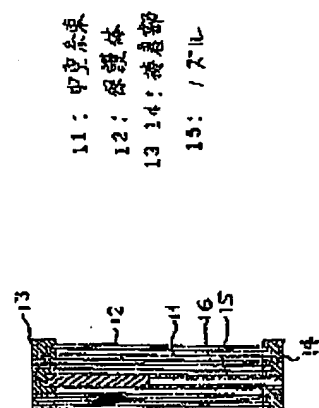 11: 中空糸束
12: 保護体
13 14: 接着部
15: ノズル
13
12
11
16
15
14